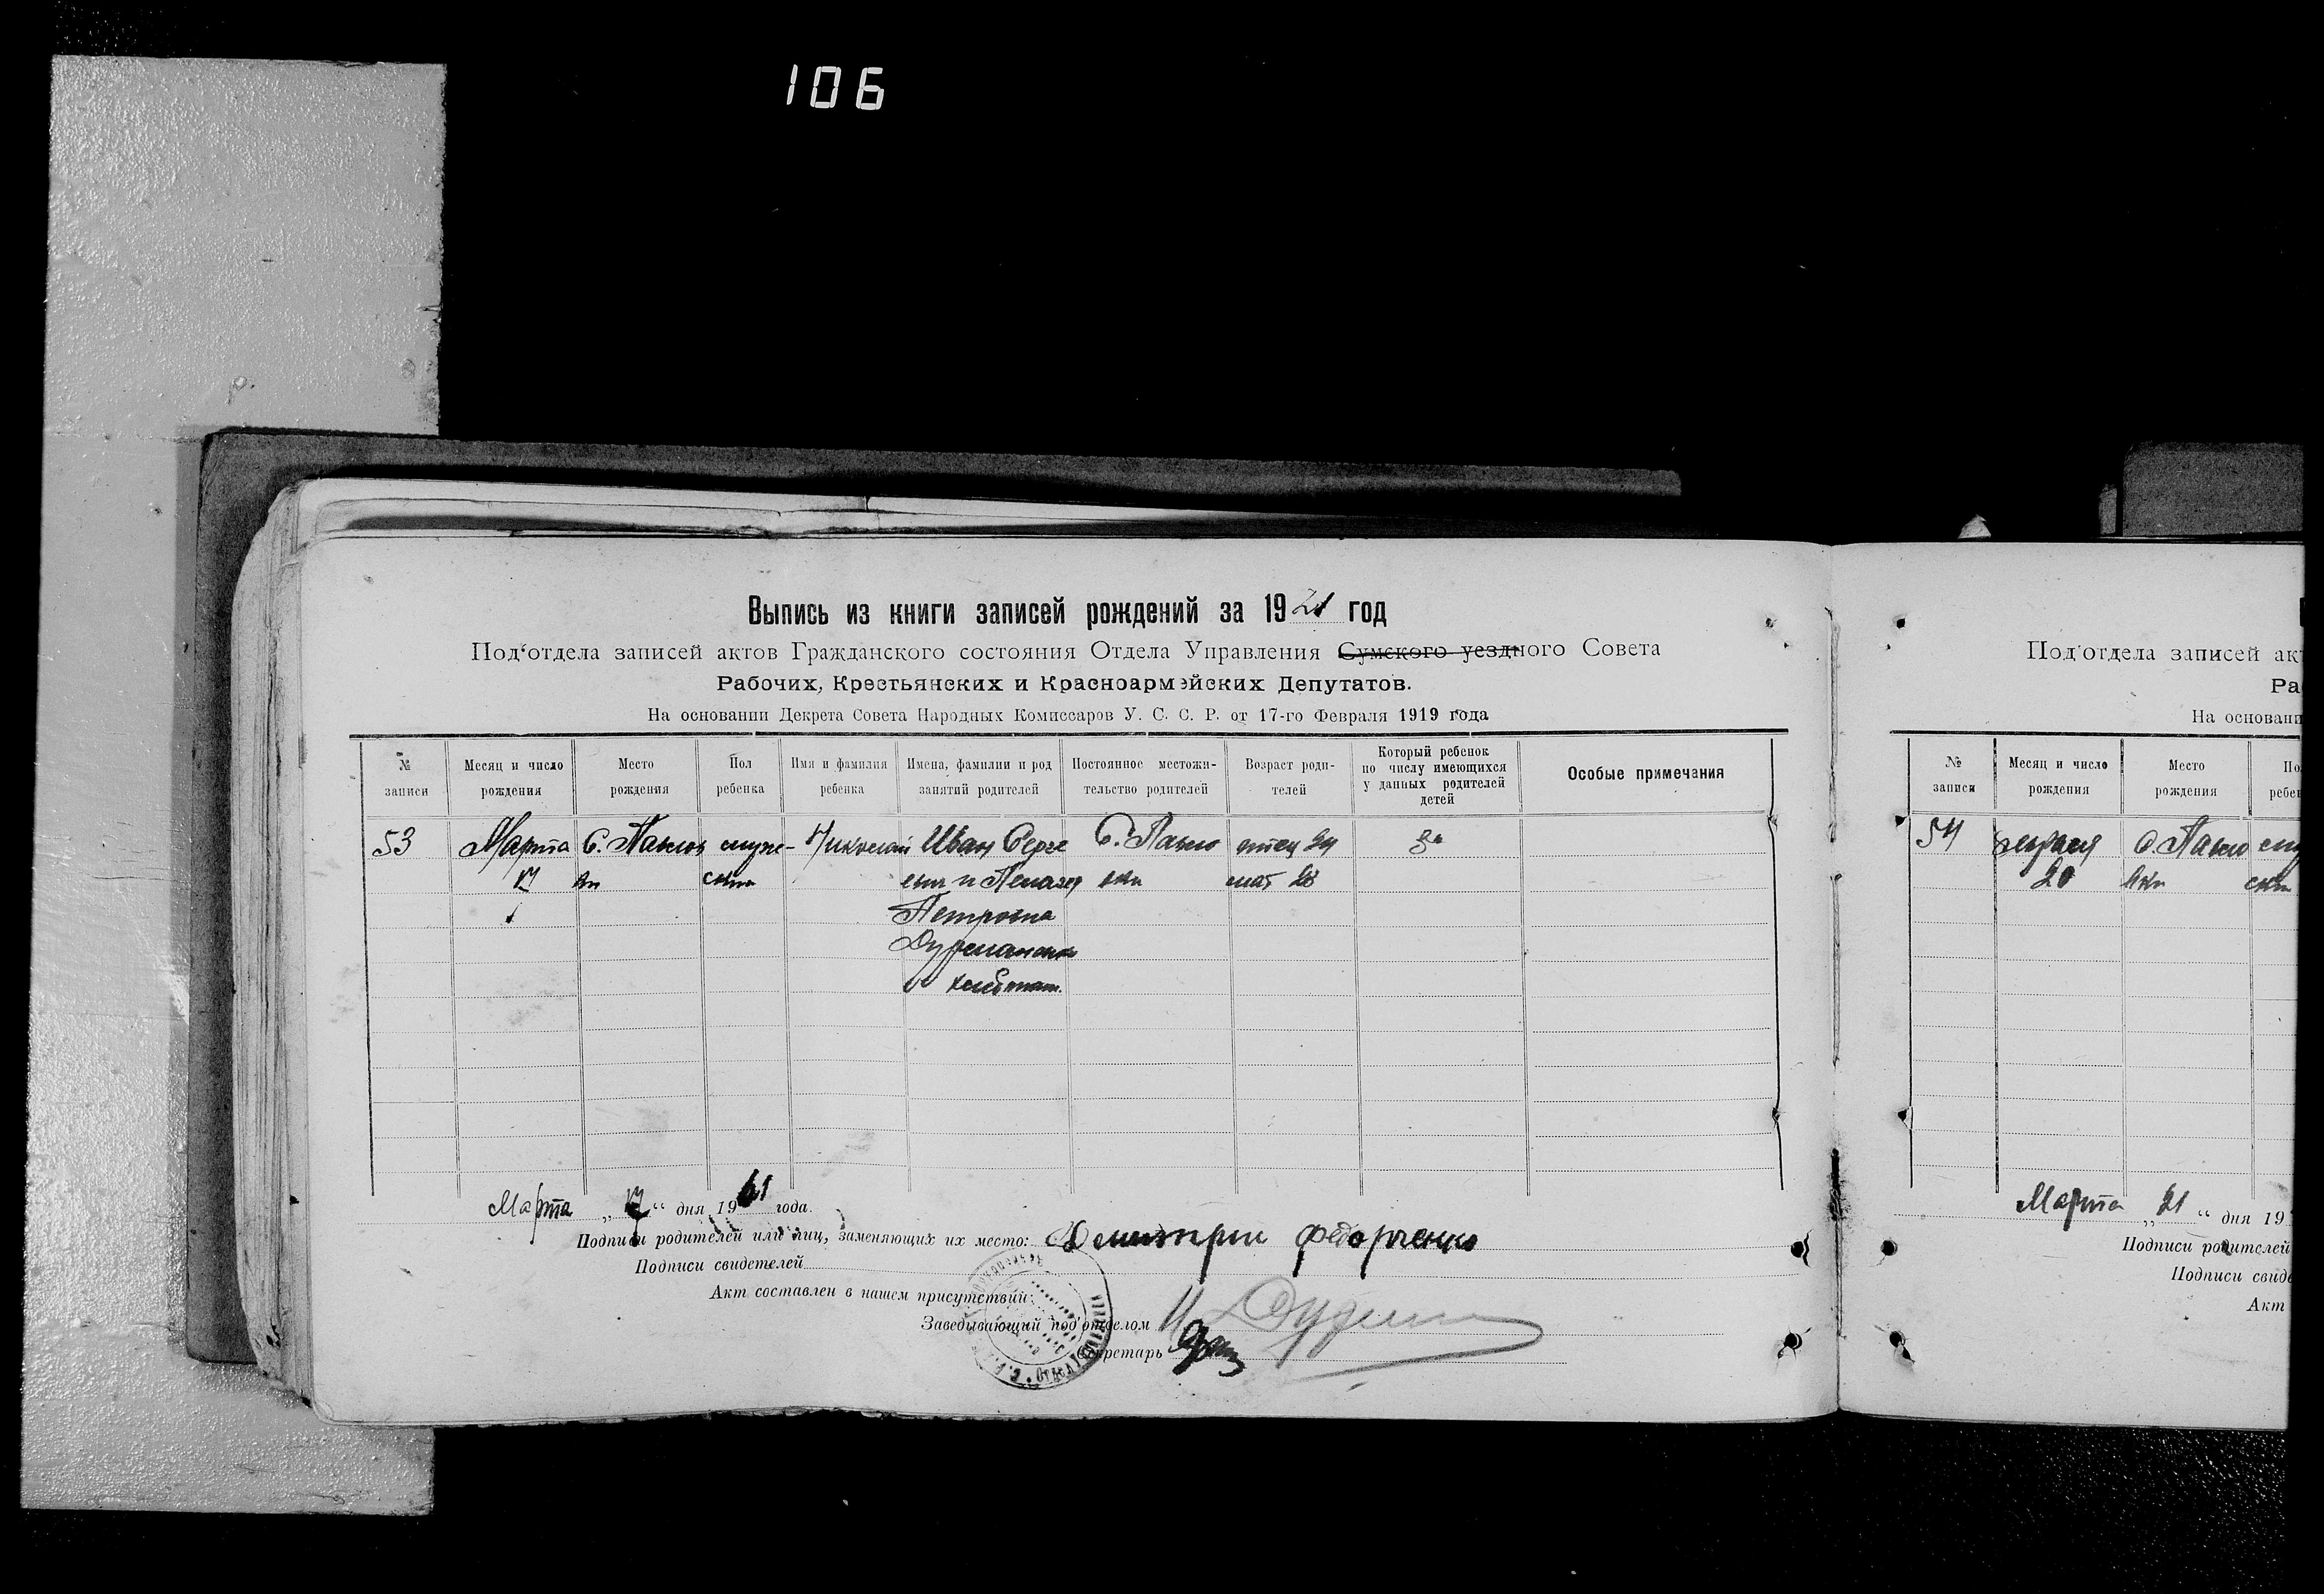 106
Выпись из книги записей рождений за 1921 год
Под'отдела записей актов Гражданского состояния Отдела Управления Сумского уездного Совета
Рабочих, Крестьянских и Красноармейских Депутатов.
На основании Декрета Совета Народных Комиссаров У. С. С. Р. от 17-го Февраля 1919 года
№ записи
Месяц и число рождения
Место рождения
Пол ребенка
Имя и фамилия ребенка
Имена, фамилии и род занятий родителей
Постоянное местожи-
тельство родителей
Возраст роди-
телей
Который ребенок
по числу имеющихся
у данных родителей
детей
Особые примечания
53
Марта
17
С. Павлов
ки
муже-
ский
Николай
Иван Серге
евич и Пелагея
Петровна
хлебопаш.
С. Павло
вки
отец
мат 28
Марта „17“ дня 1921 года.
Подписи родителей или лиц, заменяющих их место: Демитрий Федорченко
Подписи свидетелей
Акт составлен в нашем присутствии:
Заведывающий под'отделом
Секретарь
Под'отдела записей ак
Ра
На основани
№ записи
Месяц и число рождения
Место рождения
По
ребен
54
20
С. Павло
вки
муж
ски
Марта „21“ дня 19
Подписи родителей
Подписи свиде
Акт